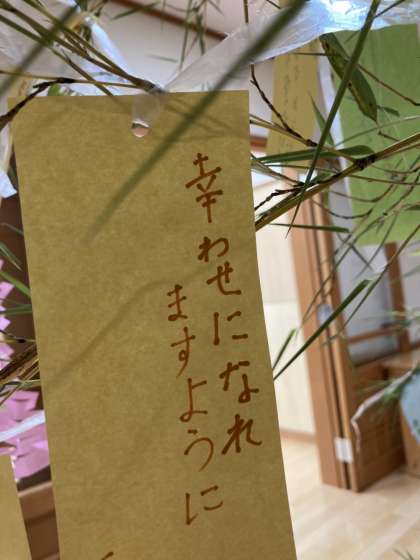 幸わせになれ
ますように